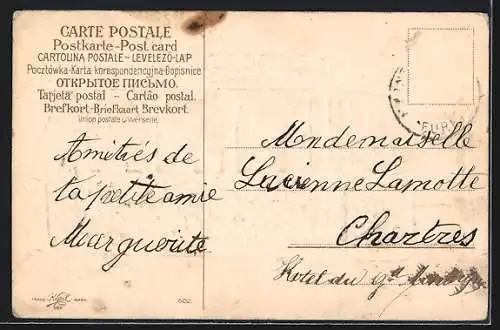 CARTE POSTALE
Postkarte-Post card
CARTOLINA POSTALE-LEVELEZŐ-LAP
Pocztówka-Karta korespondencyjna-Dopisnice
ОТКРЫТОЕ ПИСЬМО.
Tarjeta postal - Cartão postal.
Brefkort-Briefkaart Brevkort.
Union postale universelle.
Amitiés de
la petite amie
Marguerite
Mademoiselle
Lucienne Lamotte
Chartres
Hotel du Gd
EURE
TRADE MARK.
602